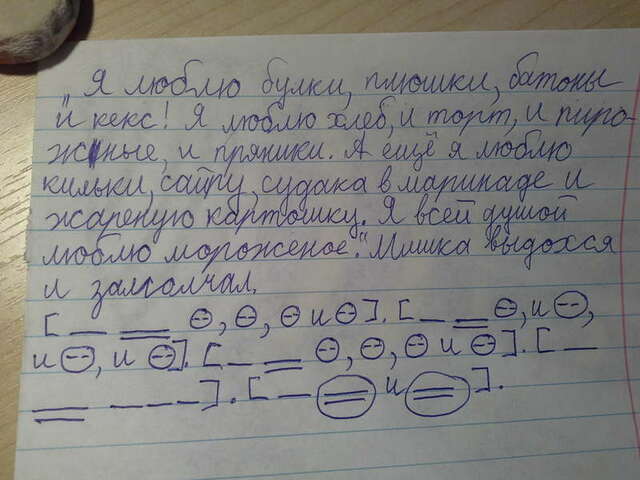 „Я люблю булки, плюшки, батоны
и кекс! Я люблю хлеб, и торт, и пиро-
жные, и пряники. А ещё я люблю
кильки, сайру, судака в маринаде и
жареную картошку. Я всей душой
люблю мороженое." Мишка выдохся
и замолчал.
[ и ]. [ , и ,
и , и ]. [ , , и ]. [
]. [ и ].